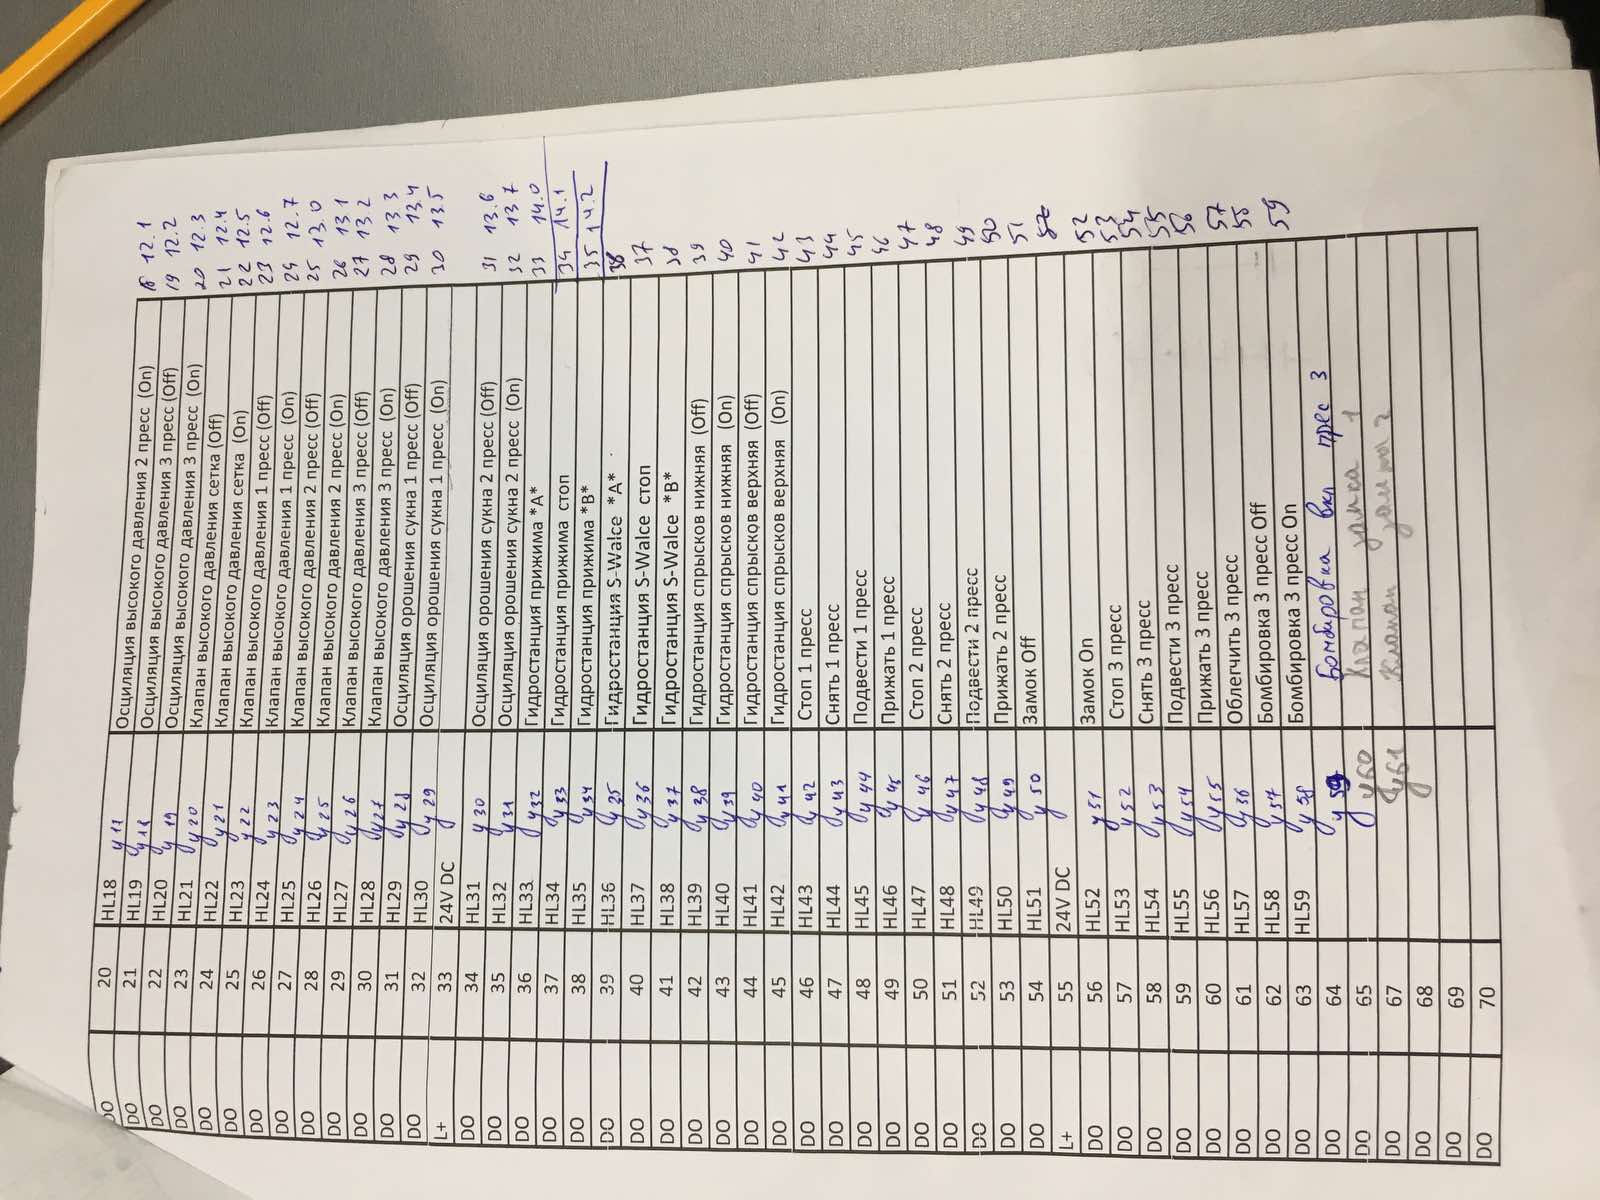 DO 20 HL18 у 17 Осциляция высокого давления 2 пресс (On) 18 12.1
DO 21 HL19 у 18 Осциляция высокого давления 3 пресс (Off) 19 12.2
DO 22 HL20 у 19 Осциляция высокого давления 3 пресс (On) 20 12.3
DO 23 HL21 у 20 Клапан высокого давления сетка (Off) 21 12.4
DO 24 HL22 у 21 Клапан высокого давления сетка (On) 22 12.5
DO 25 HL23 у 22 Клапан высокого давления 1 пресс (Off) 23 12.6
DO 26 HL24 у 23 Клапан высокого давления 1 пресс (On) 24 12.7
DO 27 HL25 у 24 Клапан высокого давления 2 пресс (Off) 25 13.0
DO 28 HL26 у 25 Клапан высокого давления 2 пресс (On) 26 13.1
DO 29 HL27 у 26 Клапан высокого давления 3 пресс (Off) 27 13.2
DO 30 HL28 у 27 Клапан высокого давления 3 пресс (On) 28 13.3
DO 31 HL29 у 28 Осциляция орошения сукна 1 пресс (Off) 29 13.4
DO 32 HL30 у 29 Осциляция орошения сукна 1 пресс (On) 30 13.5
L+ 33 24V DC
DO 34 HL31 у 30 Осциляция орошения сукна 2 пресс (Off) 31 13.6
DO 35 HL32 у 31 Осциляция орошения сукна 2 пресс (On) 32 13.7
DO 36 HL33 у 32 Гидростанция прижима *А* 33 14.0
DO 37 HL34 у 33 Гидростанция прижима стоп 34 14.1
DO 38 HL35 у 34 Гидростанция прижима *В* 35 14.2
DO 39 HL36 у 35 Гидростанция S-Walce *А* 36
DO 40 HL37 у 36 Гидростанция S-Walce стоп 37
DO 41 HL38 у 37 Гидростанция S-Walce *В* 38
DO 42 HL39 у 38 Гидростанция спрысков нижняя (Off) 39
DO 43 HL40 у 39 Гидростанция спрысков нижняя (On) 40
DO 44 HL41 у 40 Гидростанция спрысков верхняя (Off) 41
DO 45 HL42 у 41 Гидростанция спрысков верхняя (On) 42
DO 46 HL43 у 42 Стоп 1 пресс 43
DO 47 HL44 у 43 Снять 1 пресс 44
DO 48 HL45 у 44 Подвести 1 пресс 45
DO 49 HL46 у 45 Прижать 1 пресс 46
DO 50 HL47 у 46 Стоп 2 пресс 47
DO 51 HL48 у 47 Снять 2 пресс 48
DO 52 HL49 у 48 Подвести 2 пресс 49
DO 53 HL50 у 49 Прижать 2 пресс 50
DO 54 HL51 у 50 Замок Off 51
L+ 55 24V DC
DO 56 HL52 у 51 Замок On 52
DO 57 HL53 у 52 Стоп 3 пресс 53
DO 58 HL54 у 53 Снять 3 пресс 54
DO 59 HL55 у 54 Подвести 3 пресс 55
DO 60 HL56 у 55 Прижать 3 пресс 56
DO 61 HL57 у 56 Облегчить 3 пресс 57
DO 62 HL58 у 57 Бомбировка 3 пресс Off 58
DO 63 HL59 у 58 Бомбировка 3 пресс On 59
DO 64 у 59 Бомбировка вкл прес 3
DO 65 у 60 Клапан замка 1
DO 67 у 61 Клапан замка 2
DO 68
DO 69
DO 70